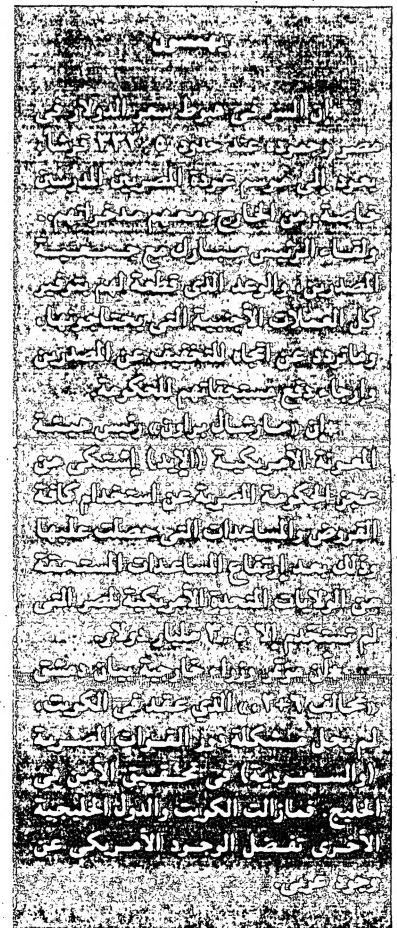 يهمسون
*إن السر في هبوط سعر الدولار في
مصر وجموده عند حدود
يعود إلى موسم عودة المصريين المدرسين
خاصة، من الخارج ومعهم مدخراتهم..
ولقاء الرئيس مبارك مع جمعية
المصدرين والوعد الذي قطعه لهم بتوفير
كل العملات الأجنبية التي يحتاجونها،
وماتردد عن اتجاه للتخفيف عن المصدرين
وإرجاء دفع مستحقاتهم للحكومة.
*إن «مارشال براون» رئيس هيئة
المعونة الأمريكية (الإيد) إشتكى من
عجز الحكومة المصرية عن استخدام كافة
القروض والمساعدات التي حصلت عليها
وذلك بعد إرتفاع المساعدات المستحقة
من الولايات المتحدة الأمريكية لمصر التي
لم تستخدم إلا مليار دولار.
*أن مؤتمر وزراء خارجية بيان دمشق
«تحالف ٦+٢»، الذي عقد في الكويت،
لم يحل مشكلة دور القوات المصرية
(والسورية) في تحقيق الأمن في
الخليج. فمازالت الكويت والدول الخليجية
الأخرى تفضل الوجود الأمريكي عن
وجود عربي.